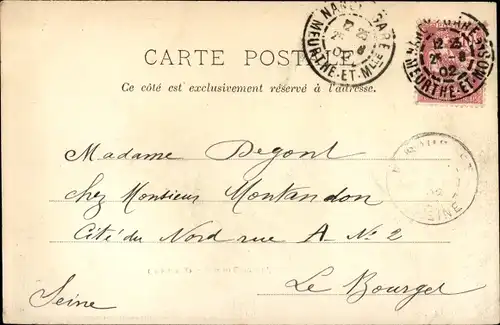 NANCY GARE
12 25
MEURTHE-ET-MLLE
NANCY GARE
12 25
02
MEURTHE-ET-MOS
CARTE POSTALE
Ce côté est exclusivement réservé à l'adresse.
Madame Degont
chez Monsieur Montandon
Cité du Nord rue A No 2
Le Bourget
Seine